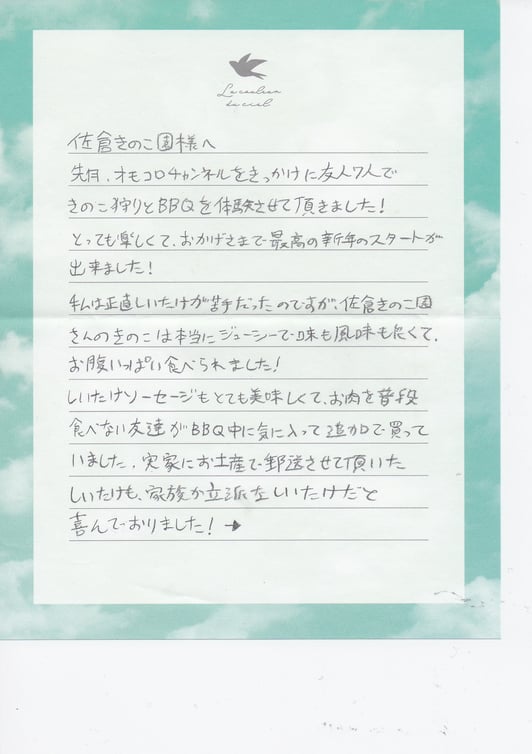 La couleur
du ciel
佐倉きのこ園様へ
先日、オモコロチャンネルをきっかけに友人7人で
きのこ狩りとBBQを体験させて頂きました!
とっても楽しくて、おかげさまで最高の新年のスタートが
出来ました!
私は正直しいたけが苦手だったのですが、佐倉きのこ園
さんのきのこは本当にジューシーで味も風味も良くて、
お腹いっぱい食べられました!
しいたけソーセージもとても美味しくて、お肉を普段
食べない友達がBBQ中に気に入って追加で買って
いました。実家にお土産で郵送させて頂いた
しいたけも、家族が立派なしいたけだと
喜んでおりました! →